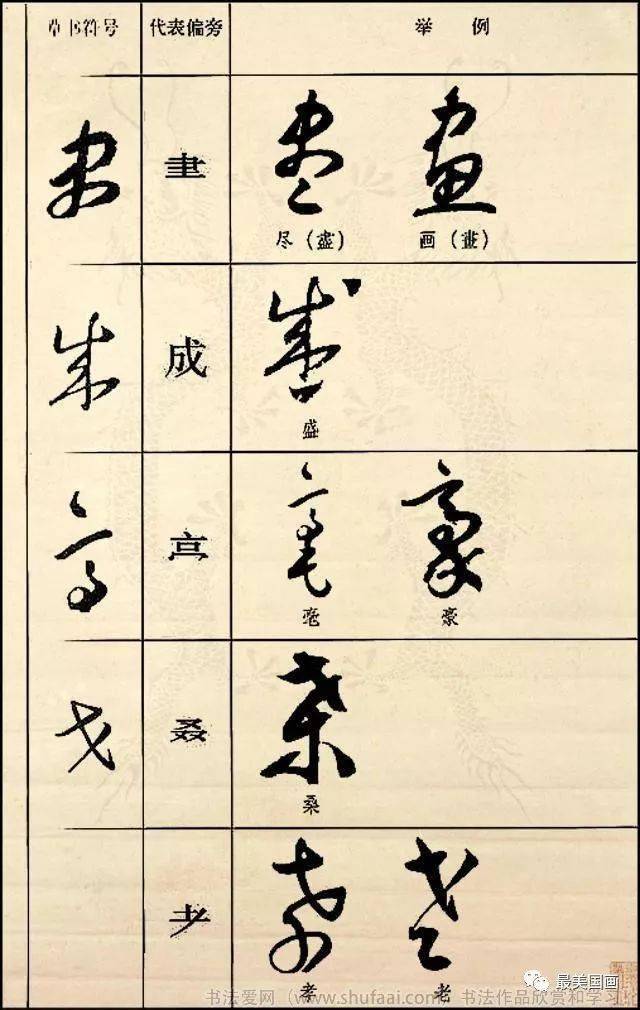 草书符号 代表偏旁 举例
𦘒 尽（盡） 画（畫）
成 盛
亮 毫 豪
叒 桑
耂 孝 老
最美国画
书法爱网（www.shufaai.com）书法作品欣赏和学习